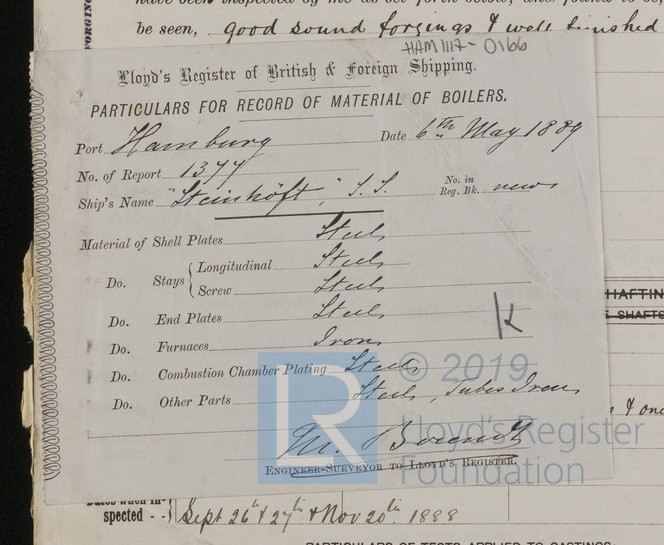 be seen, good sound forgings & well finished
HAM1117-0166
Lloyd's Register of British & Foreign Shipping.
PARTICULARS FOR RECORD OF MATERIAL OF BOILERS.
Port Hamburg Date 6th May 1889
No. of Report 1377
Ship's Name "Steinhöft", S.S. No. in Reg. Bk. new
Material of Shell Plates Steel
Do. Stays { Longitudinal Steel
Screw Steel
Do. End Plates Steel
Do. Furnaces Iron
Do. Combustion Chamber Plating Steel
Do. Other Parts Steel, Tubes Iron
© 2019
LR Lloyd's Register
Foundation
ENGINEER-SURVEYOR TO LLOYD'S REGISTER.
spected - - Sept 26th & 27th & Nov 20th 1888